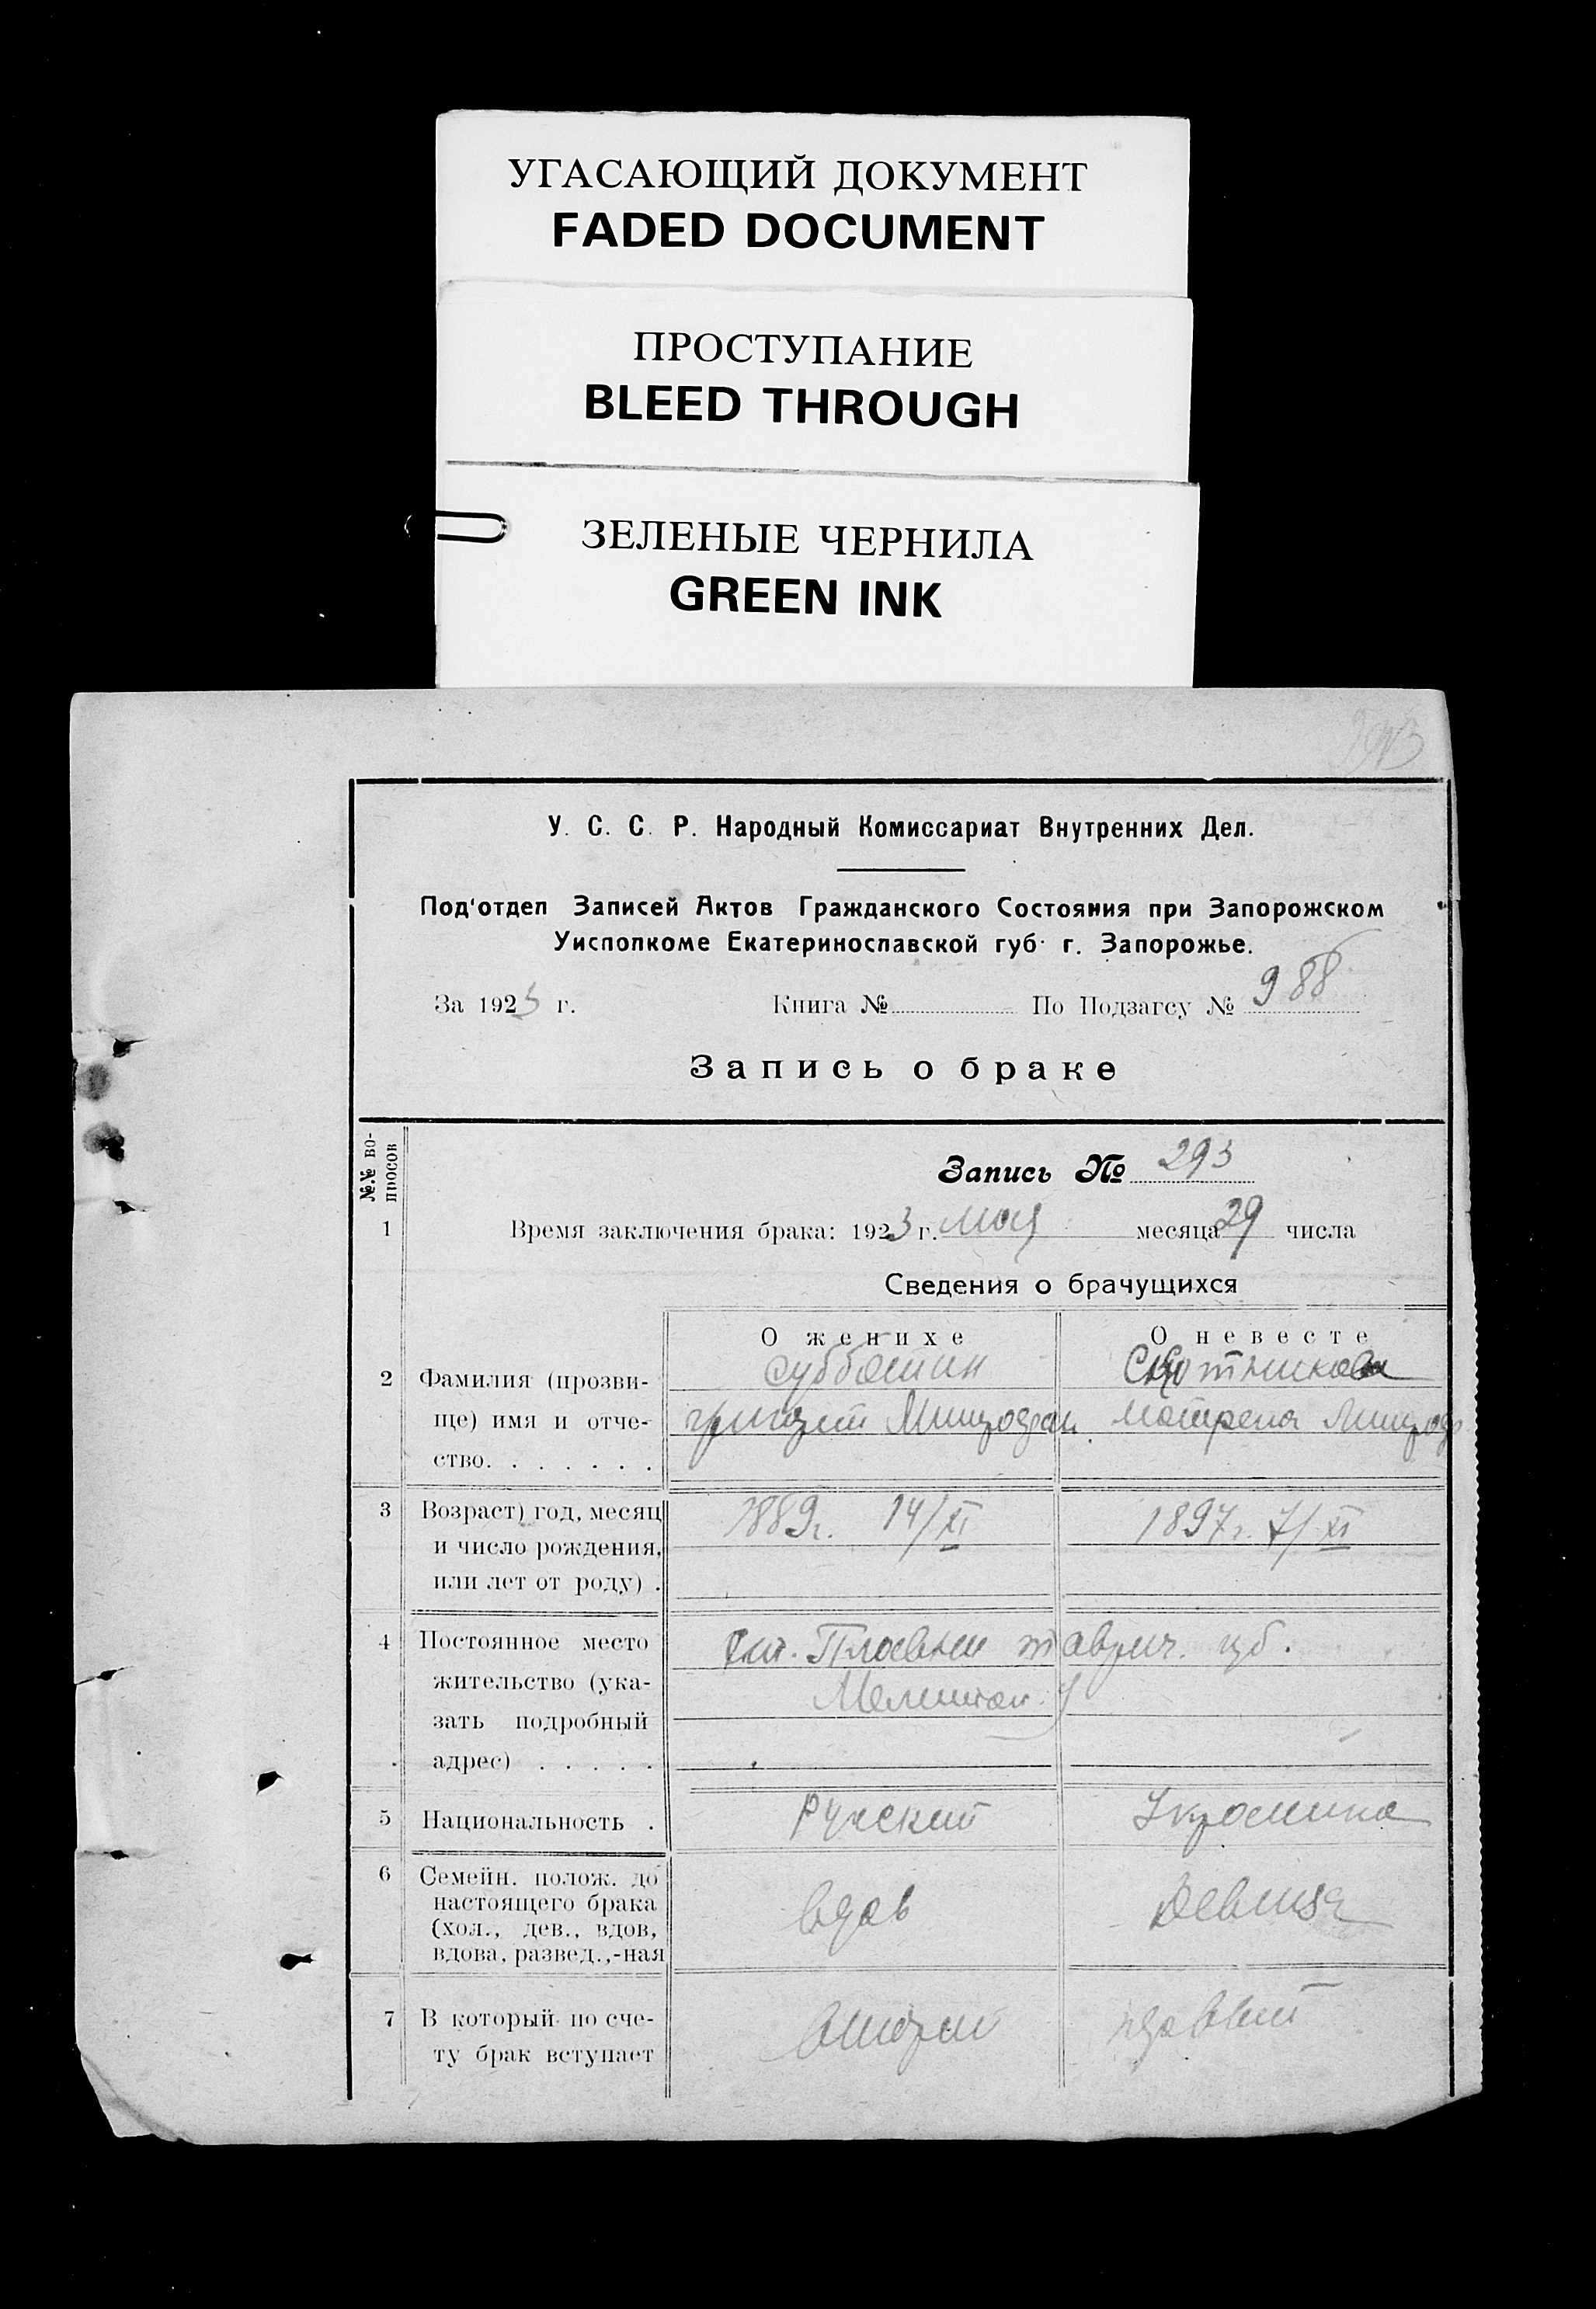 УГАСАЮЩИЙ ДОКУМЕНТ
FADED DOCUMENT
ПРОСТУПАНИЕ
BLEED THROUGH
ЗЕЛЕНЫЕ ЧЕРНИЛА
GREEN INK
У. С. С. Р. Народный Комиссариат Внутренних Дел.
Под'отдел Записей Актов Гражданского Состояния при Запорожском
Уисполкоме Екатеринославской губ. г. Запорожье.
За 1923 г. Книга № По Подзагсу № 988
Запись о браке
№№ во-
просов
Запись № 293
1 Время заключения брака: 1923 г. мая месяца 29 числа
Сведения о брачущихся
О женихе О невесте
2 Фамилия (прозви- Субботин
ще) имя и отче- Григорий Митрофан. Матрена Митроф
ство. . . . . . .
3 Возраст) год, месяц 1889г. 14/XI 1897г. 7/XI
и число рождения,
или лет от роду) .
4 Постоянное место Плавни таврич. губ.
жительство (ука- Мелитоп. у
зать подробный
адрес) . . . . .
5 Национальность . Русский Украинка
6 Семейн. полож. до
настоящего брака вдов Девица
(хол., дев., вдов,
вдова, развед.,-ная
7 В который по сче- второй первый
ту брак вступает